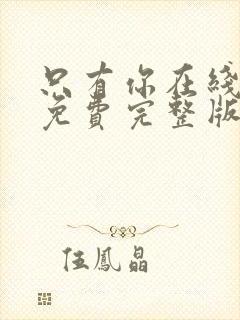 只有你在綫
免費完整版
伍鳳晶